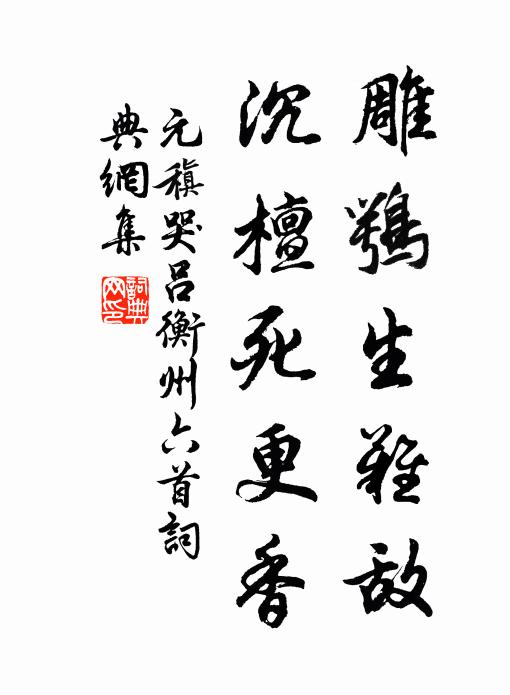 雕鹗生難敌
沉檀死更香
元稹哭吕衡州六首詞
典網集
詞典网印